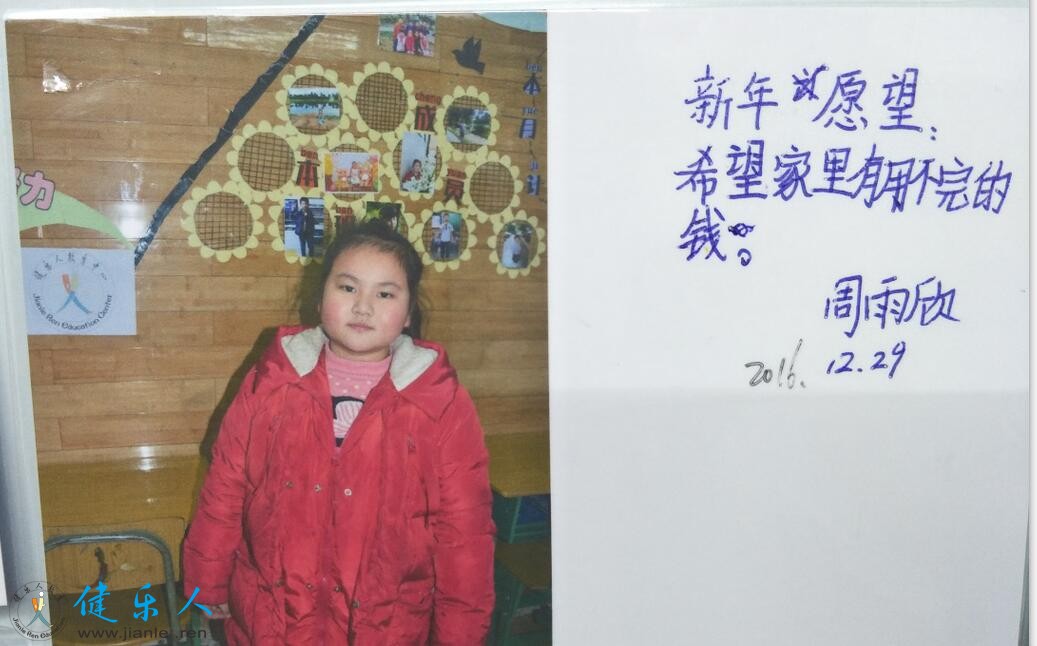 新年愿望：
希望家里有用不完的
钱。
周雨欣
2016. 12.29
力
健乐人教育中心
Jianle Ren Education Center
cheng
成
员
本
ben
本
yue
月
ji
计
健乐人
www.jianle.ren